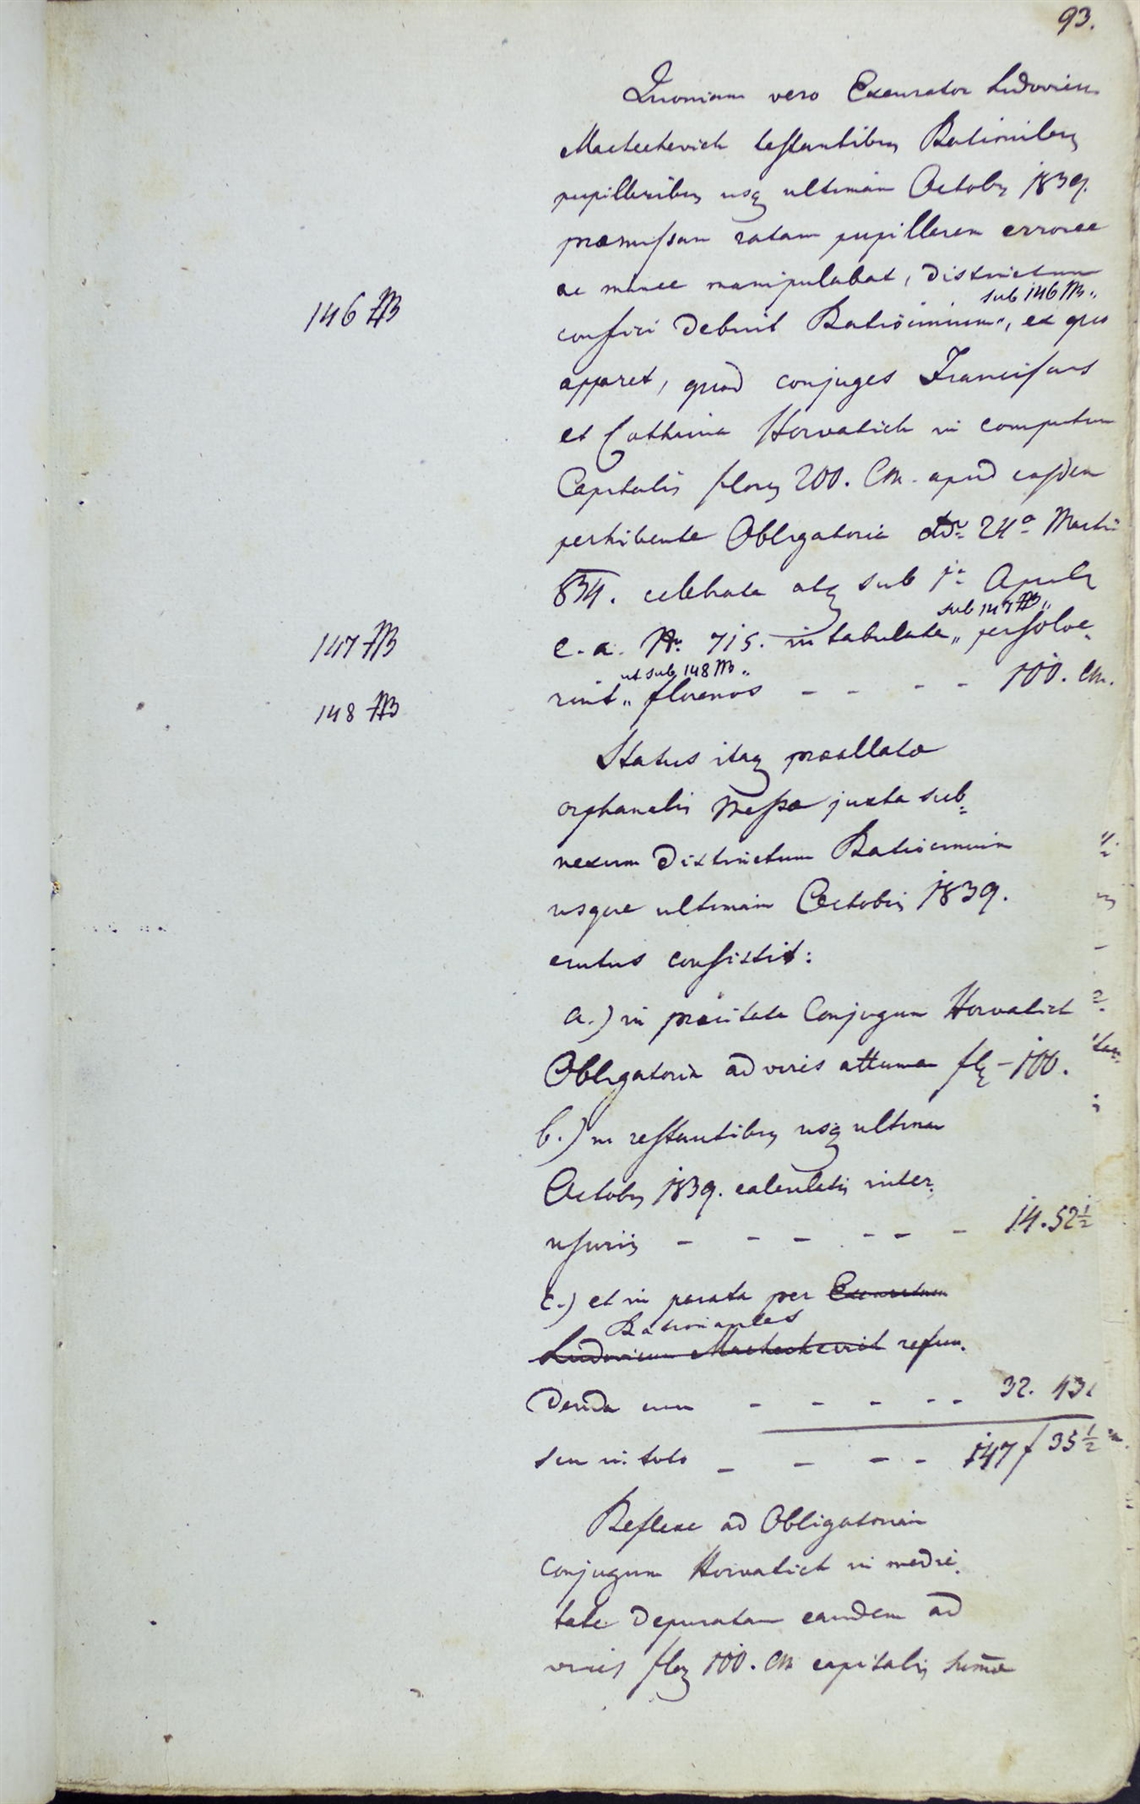 93.
Quoniam vero Excurator Ludovicus
Machechevich testantibus Rationibus
pupillaribus usq ultimam Octobris 1839.
præmissam ratam pupillarem erronee
ac mance manipulabat, districtum
sub 146 AB "
146 AB
confici debuit Ratiocinium ", ex quo
apparet, quod conjuges Franciscus
et Catharina Horvatich in computum
Capitalis florenis 200. CM. apud eosdem
perhibente Obligatoria ddto 24a Martii
834. celebrata atq sub 1a Aprilis
sub 147 AB "
147 AB
e. a. No 715. intabulata " persolve-
ut sub 148 AB "
148 AB
rint " florenos - - - - 100. CM.
Status itaq præallatæ
orphanalis Massæ juxta sub=
nexum Districtum Ratiocinium
usque ultimam Octobris 1839.
erutus consistit:
a.) in præcitata Conjugum Horvatich
Obligatoria ad vires attamen fl. - 100.
b.) in restantibus usq ultimam
Octobris 1839. calculatis inter-
usuriis - - - - - - 14. 52 1/2
c.) et in parata per Excuratorem
Rationantes
Ludovicum Machechevich refun-
denda cum - - - - - 32. 43
seu in toto - - - - 147 f 35 1/2
Reflexe ad Obligatoriam
Conjugum Horvatich in medie-
tate depuratam eandem ad
vires fl. 100. CM capitalis summæ